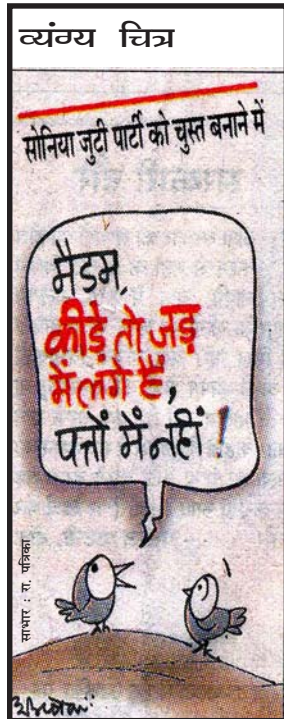 व्यंग्य चित्र
सोनिया जुटी पार्टी को चुस्त बनाने में
मैडम,
कीड़े तो जड़
में लगे हैं,
पत्तों में नहीं !
साभार : रा. पत्रिका